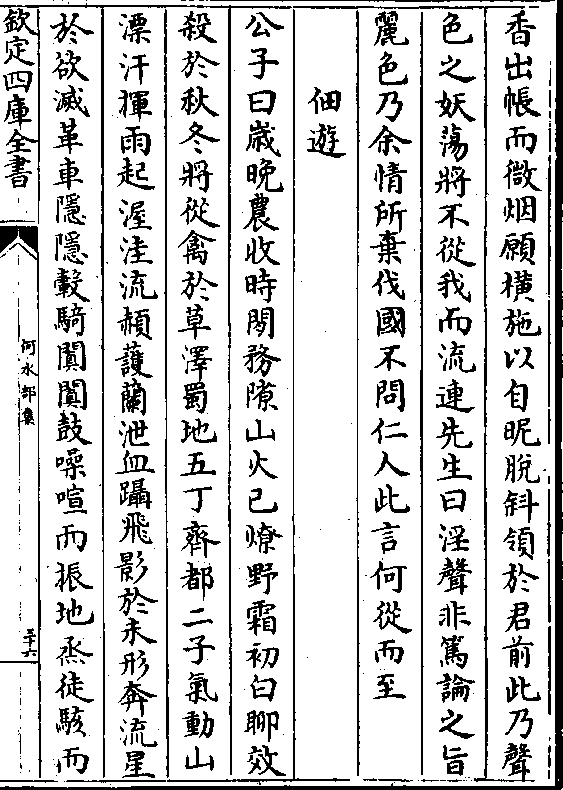 香出帳而微烟願橫施以自昵脫斜領於君前此乃聲
色之妖蕩將不從我而流連先生曰淫聲非篤論之旨
麗色乃余情所棄伐國不問仁人此言何從而至
佃遊
公子曰歲晚農收時閒務隙山火已燎野霜初白聊效
殺於秋冬將從禽於草澤蜀地五丁齊都二子氣動山
漂汗揮雨起渥洼流赬護蘭泄血躡飛影於未形奔流星
於欲滅革車隱隱轂騎闐闐鼓噪喧而振地烝徒駭而
欽定四庫全書
何水部集
二十六